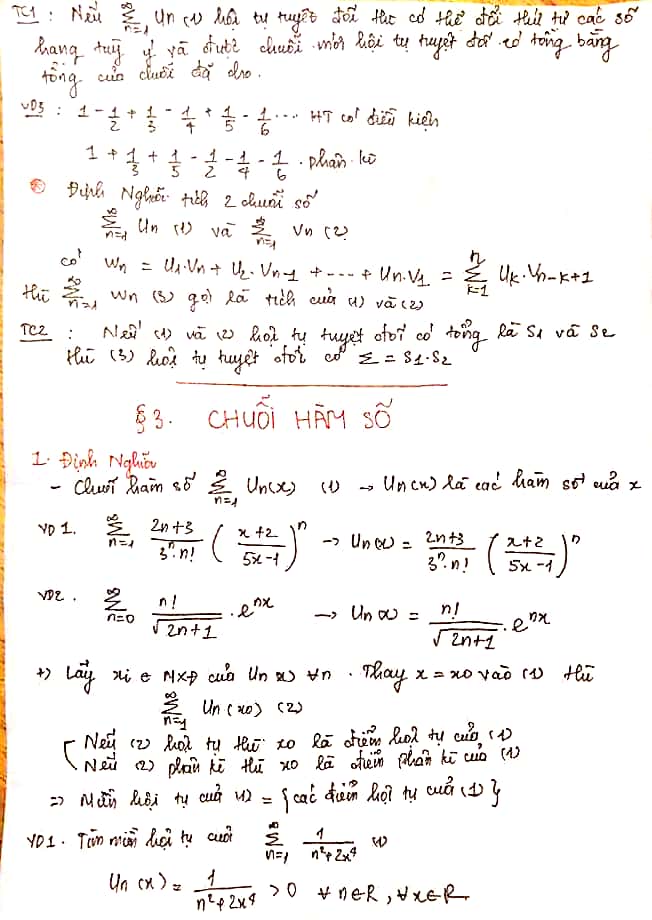 TC1 : Nếu ∑_{n=1}^{∞} Un (1) hội tụ tuyệt đối thì có thể đổi thứ tự các số
hạng tuỳ ý và được chuỗi mới hội tụ tuyệt đối có tổng bằng
tổng của chuỗi đã cho.
VD3 : 1 - 1/2 + 1/3 - 1/4 + 1/5 - 1/6 ... HT có điều kiện
1 + 1/3 + 1/5 - 1/2 - 1/4 - 1/6 . phân kì
Định Nghĩa tích 2 chuỗi số
∑_{n=1}^{∞} Un (1) và ∑_{n=1}^{∞} Vn (2)
có Wn = U1.Vn + U2.Vn-1 + --- + Un.V1 = ∑_{k=1}^{n} Uk.Vn-k+1
thì ∑_{n=1}^{∞} Wn (3) gọi là tích của (1) và (2)
TC2 : Nếu (1) và (2) hội tụ tuyệt đối có tổng là S1 và S2
thì (3) hội tụ tuyệt đối có Σ = S1.S2
§3. CHUỖI HÀM SỐ
1. Định Nghĩa
- Chuỗi hàm số ∑_{n=1}^{∞} Un(x) (1) → Un(x) là các hàm số của x
VD1. ∑_{n=1}^{∞} (2n+3)/(3^n.n!) ((x+2)/(5x-1))^n → Un(x) = (2n+3)/(3^n.n!) ((x+2)/(5x-1))^n
VD2. ∑_{n=0}^{∞} n!/√(2n+1) . e^{nx} → Un(x) = n!/√(2n+1) . e^{nx}
+) Lấy xi ∈ MXĐ của Un(x) ∀n . Thay x = x0 vào (1) thì
∑_{n=1}^{∞} Un(x0) (2)
Nếu (2) hội tụ thì x0 là điểm hội tụ của (1)
Nếu (2) phân kì thì x0 là điểm phân kì của (1)
=> Miền hội tụ của (1) = {các điểm hội tụ của (1)}
VD1. Tìm miền hội tụ của ∑_{n=1}^{∞} 1/(n²+2x⁴) (1)
Un(x) = 1/(n²+2x⁴) > 0 ∀n∈R, ∀x∈R